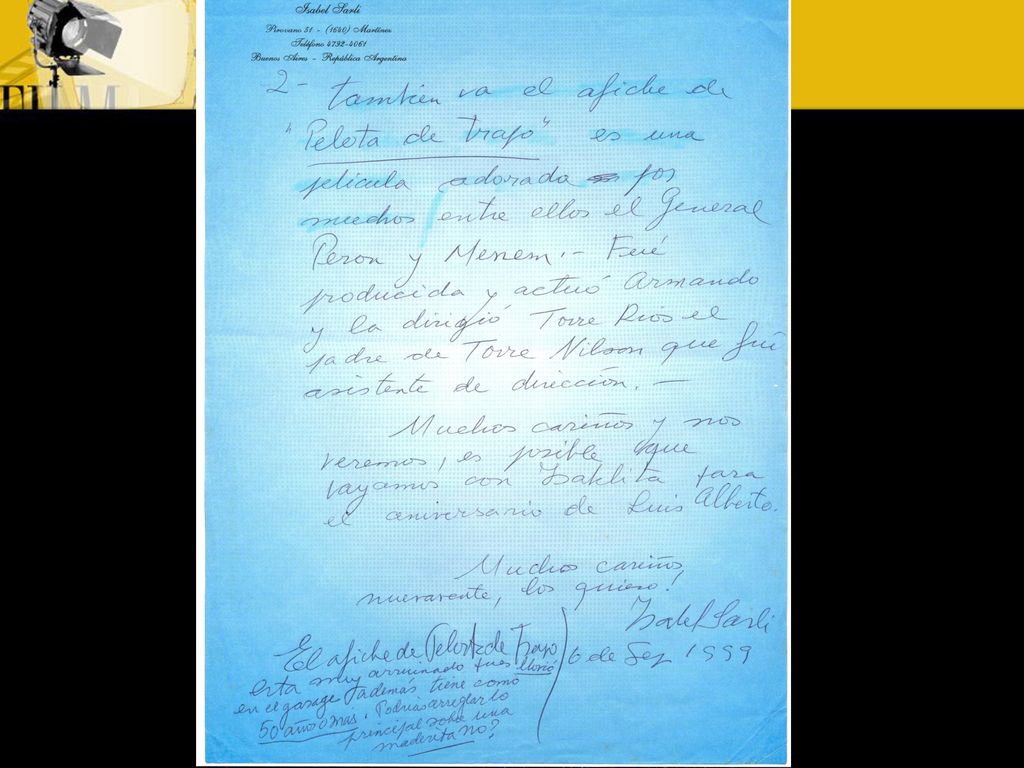 FILM
Isabel Sarli
Pirovano 51 - (1640) Martínez
Teléfono 4792-4061
Buenos Aires - República Argentina
2- también va el afiche de
"Pelota de trapo" es una
película adorada por
muchos entre ellos el General
Peron y Menem.- Fué
producida y actuó Armando
y la dirigió Torre Rios el
padre de Torre Nilson que fué
asistente de dirección. —
Muchos cariños y nos
veremos, es posible que
vayamos con Isabelita para
el aniversario de Luis Alberto.
Muchos cariños
nuevamente, los quiero!
Isabel Sarli
6 de Sep 1999
El afiche de Pelota de Trapo
esta muy arruinado pues llovió
en el garage además tiene como
50 años o más. Podrias arreglar lo
principal sobre una
maderita no?